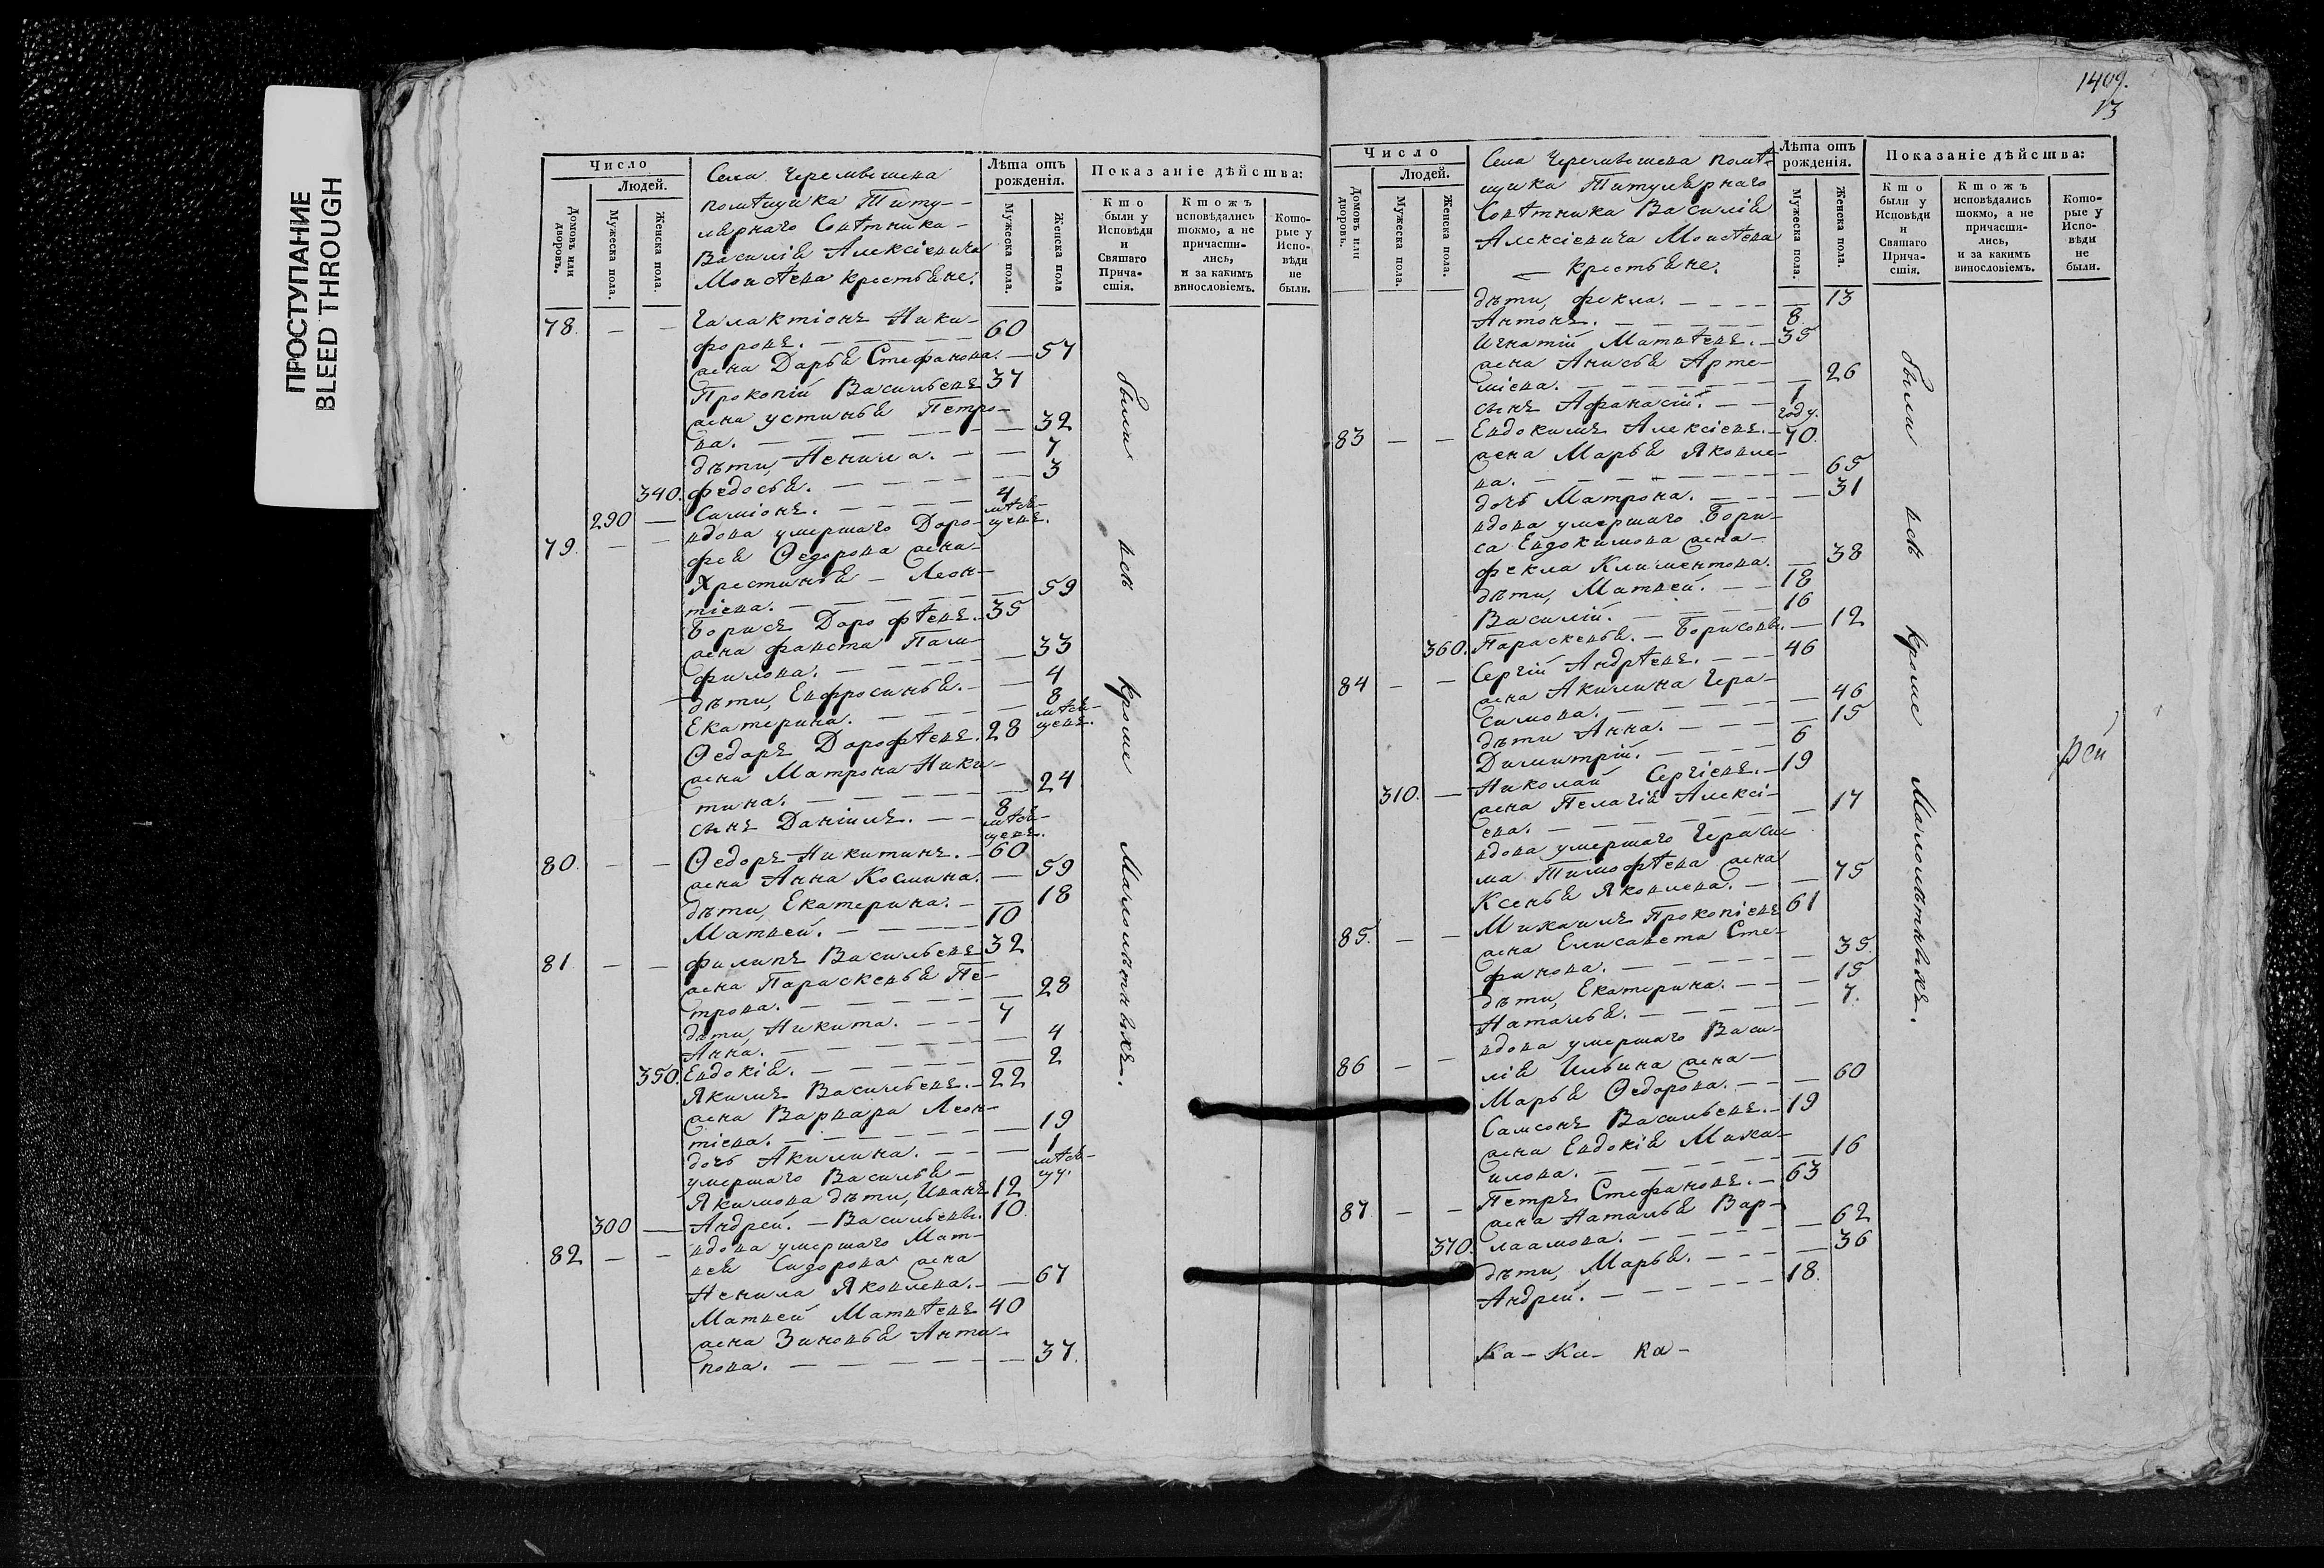 ПРОСТУПАНИЕ
BLEED THROUGH
Число
Людей.
Домовъ или дворовъ.
Мужеска пола.
Женска пола.
Села Черемышева
помѣщика Титу-
лярнаго Совѣтника
Василія Алексіевича
Моисѣева крестьяне.
Лѣта отъ рожденія.
Мужеска пола.
Женска пола
Показаніе дѣйства:
Кто были у Исповѣди и Святаго Причастія.
Ктожъ исповѣдались токмо, а не причастились, и за какимъ винословіемъ.
Которые у Исповѣди не были.
78. — — Галактіонъ Ники-
форовъ. — 60
жена Дарья Стефанова. — 57
Прокопій Васильевъ 37
жена Устинья Петро-
ва. — 32
дѣти, Ненила. — 7
340. Федосья. — 3
290 — Симіонъ. — 4 мѣся-
79. — — вдова умершаго Доро- цевъ.
фея Ѳедорова жена
Христинья — Леон-
тіева. — 59
Борисъ Дорофѣевъ. 35
жена Фавста Пам-
филова. — 33
дѣти, Евфросинья. — 4
Екатерина. — 8 мѣся-
Ѳедоръ Дорофѣевъ. 28 цевъ.
жена Матрона Ники-
тина. — 24
сынъ Даніилъ. — 8 мѣся-
цевъ.
80. — — Ѳедоръ Никитинъ. — 60
жена Анна Космина. — 59
дѣти, Екатерина. — 18
Матвей. — 10
81 — — Филипъ Васильевъ 32
жена Параскевья Пе-
трова. — 28
дѣти, Никита. — 7
Анна. — 4
350. Евдокія. — 2
Якимъ Васильевъ. — 22
жена Варвара Леон-
тіева. — 19
дочь Акилина. — 1 мѣся-
умершаго Василья — цу.
Якимова дѣти, Иванъ 12
300 — Андрей. — Васильевы. 10
82 — — вдова умершаго Мат-
вея Сидорова жена
Ненила Яковлева. — 67
Матвей Матвѣевъ 40
жена Зиновья Анти-
пова. — 37.
были всѣ кроме малолѣтныхъ.
1409.
13
Число
Людей.
Домовъ или дворовъ.
Мужеска пола.
Женска пола.
Села Черемышева помѣ-
щика Титулярнаго
Совѣтника Василія
Алексіевича Моисѣева
— крестьяне.
Лѣта отъ рожденія.
Мужеска пола.
Женска пола.
Показаніе дѣйства:
Кто были у Исповѣди и Святаго Причастія.
Ктожъ исповѣдались токмо, а не причастились, и за какимъ винословіемъ.
Которые у Исповѣди не были.
дѣти, Фекла. — 13
Антонъ. — 8.
Игнатій Матвѣевъ. — 35
жена Анисья Арте-
міева. — 26
сынъ Афанасій. — 1 году.
83 — — Евдокимъ Алексіевъ. — 70.
жена Марья Яковле-
ва. — 65
дочь Матрона. — 31
вдова умершаго Бори-
са Евдокимова жена —
Фекла Климентова. — 38
дѣти, Матвей. — 18
Василій. — 16
360. Параскевья. — Борисовы. — 12
84 — — Сергій Андрѣевъ. — 46
жена Акилина Гера-
симова. — 46
дѣти Анна. — 15
Димитрій. — 6
310. — Николай Сергіевъ. — 19
жена Пелагія Алексі-
ева. — 17
вдова умершаго Гераси
ма Тимофѣева жена
Ксенья Яковлева. — 75
85. — — Михаилъ Прокопіевъ 61
жена Елисавета Сте-
фанова. — 35.
дѣти, Екатерина. — 15
Наталья. — 7.
86 — — вдова умершаго Васи-
лія Ильина жена —
Марья Ѳедорова. — 60
Самсонъ Васильевъ. — 19
жена Евдокія Миха-
илова. — 16
87 — — Петръ Стефановъ. — 63
жена Наталья Вар-
370. лаамова. — 62
дѣти, Марья. — 36
Андрей. — 18.
были всѣ кроме малолѣтныхъ.
рей
Ка — Ка — Ка —